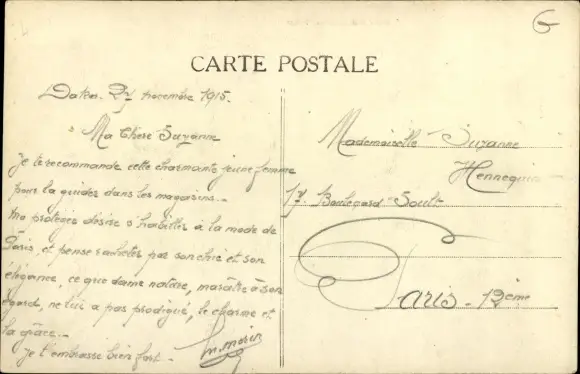 CARTE POSTALE
Dakar 27 novembre 1915.
Ma Chère Suzanne
Je te recommande cette charmante jeune femme
pour la guider dans les magasins.
Ma protégée désire s'habiller à la mode de
Paris, et pense racheter par son chic et son
élégance, ce que dame nature, marâtre à son
égard, ne lui a pas prodigué, le charme et
la grâce.
Je t'embrasse bien fort.
Mademoiselle Suzanne
Hennequin
17, Boulevard Soult
Paris - 12ème